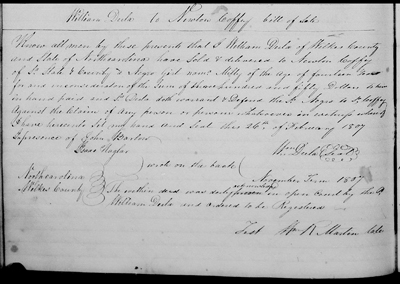 William Dula to Newton Coffey bill of Sale
Know all men by these presents that I William Dula of Wilkes County
and State of North carolina have Sold & delivered to Newton Coffey
of St. State & County a Negro girl named of the age of fourteen
for and in consideration of the Sum of three hundred and fifty Dollars to me
in hand paid and St. Dula doth warrant & Defend the St. Negro to St. Coffey
against the Claim of any person or persons whatsoever in witness whereof
I have hereunto Set my hand and Seal this 26th of February 1807
In presence of John Barlow
Wm Dula Seal
Isaac
wrote on the back
North carolina
November Term 1807
Wilkes County
The within deed was duly acknowledged in open Court by the Sd.
William Dula and ordered to be Registered
Test W R Martin